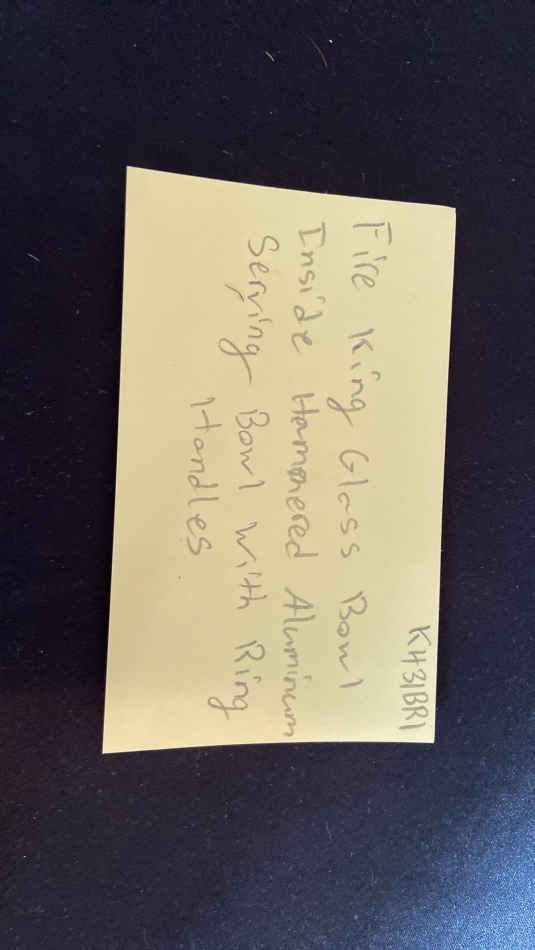 KH31BR1
Fire King Glass Bowl
Inside Hammered Aluminum
Serving Bowl with Ring
Handles